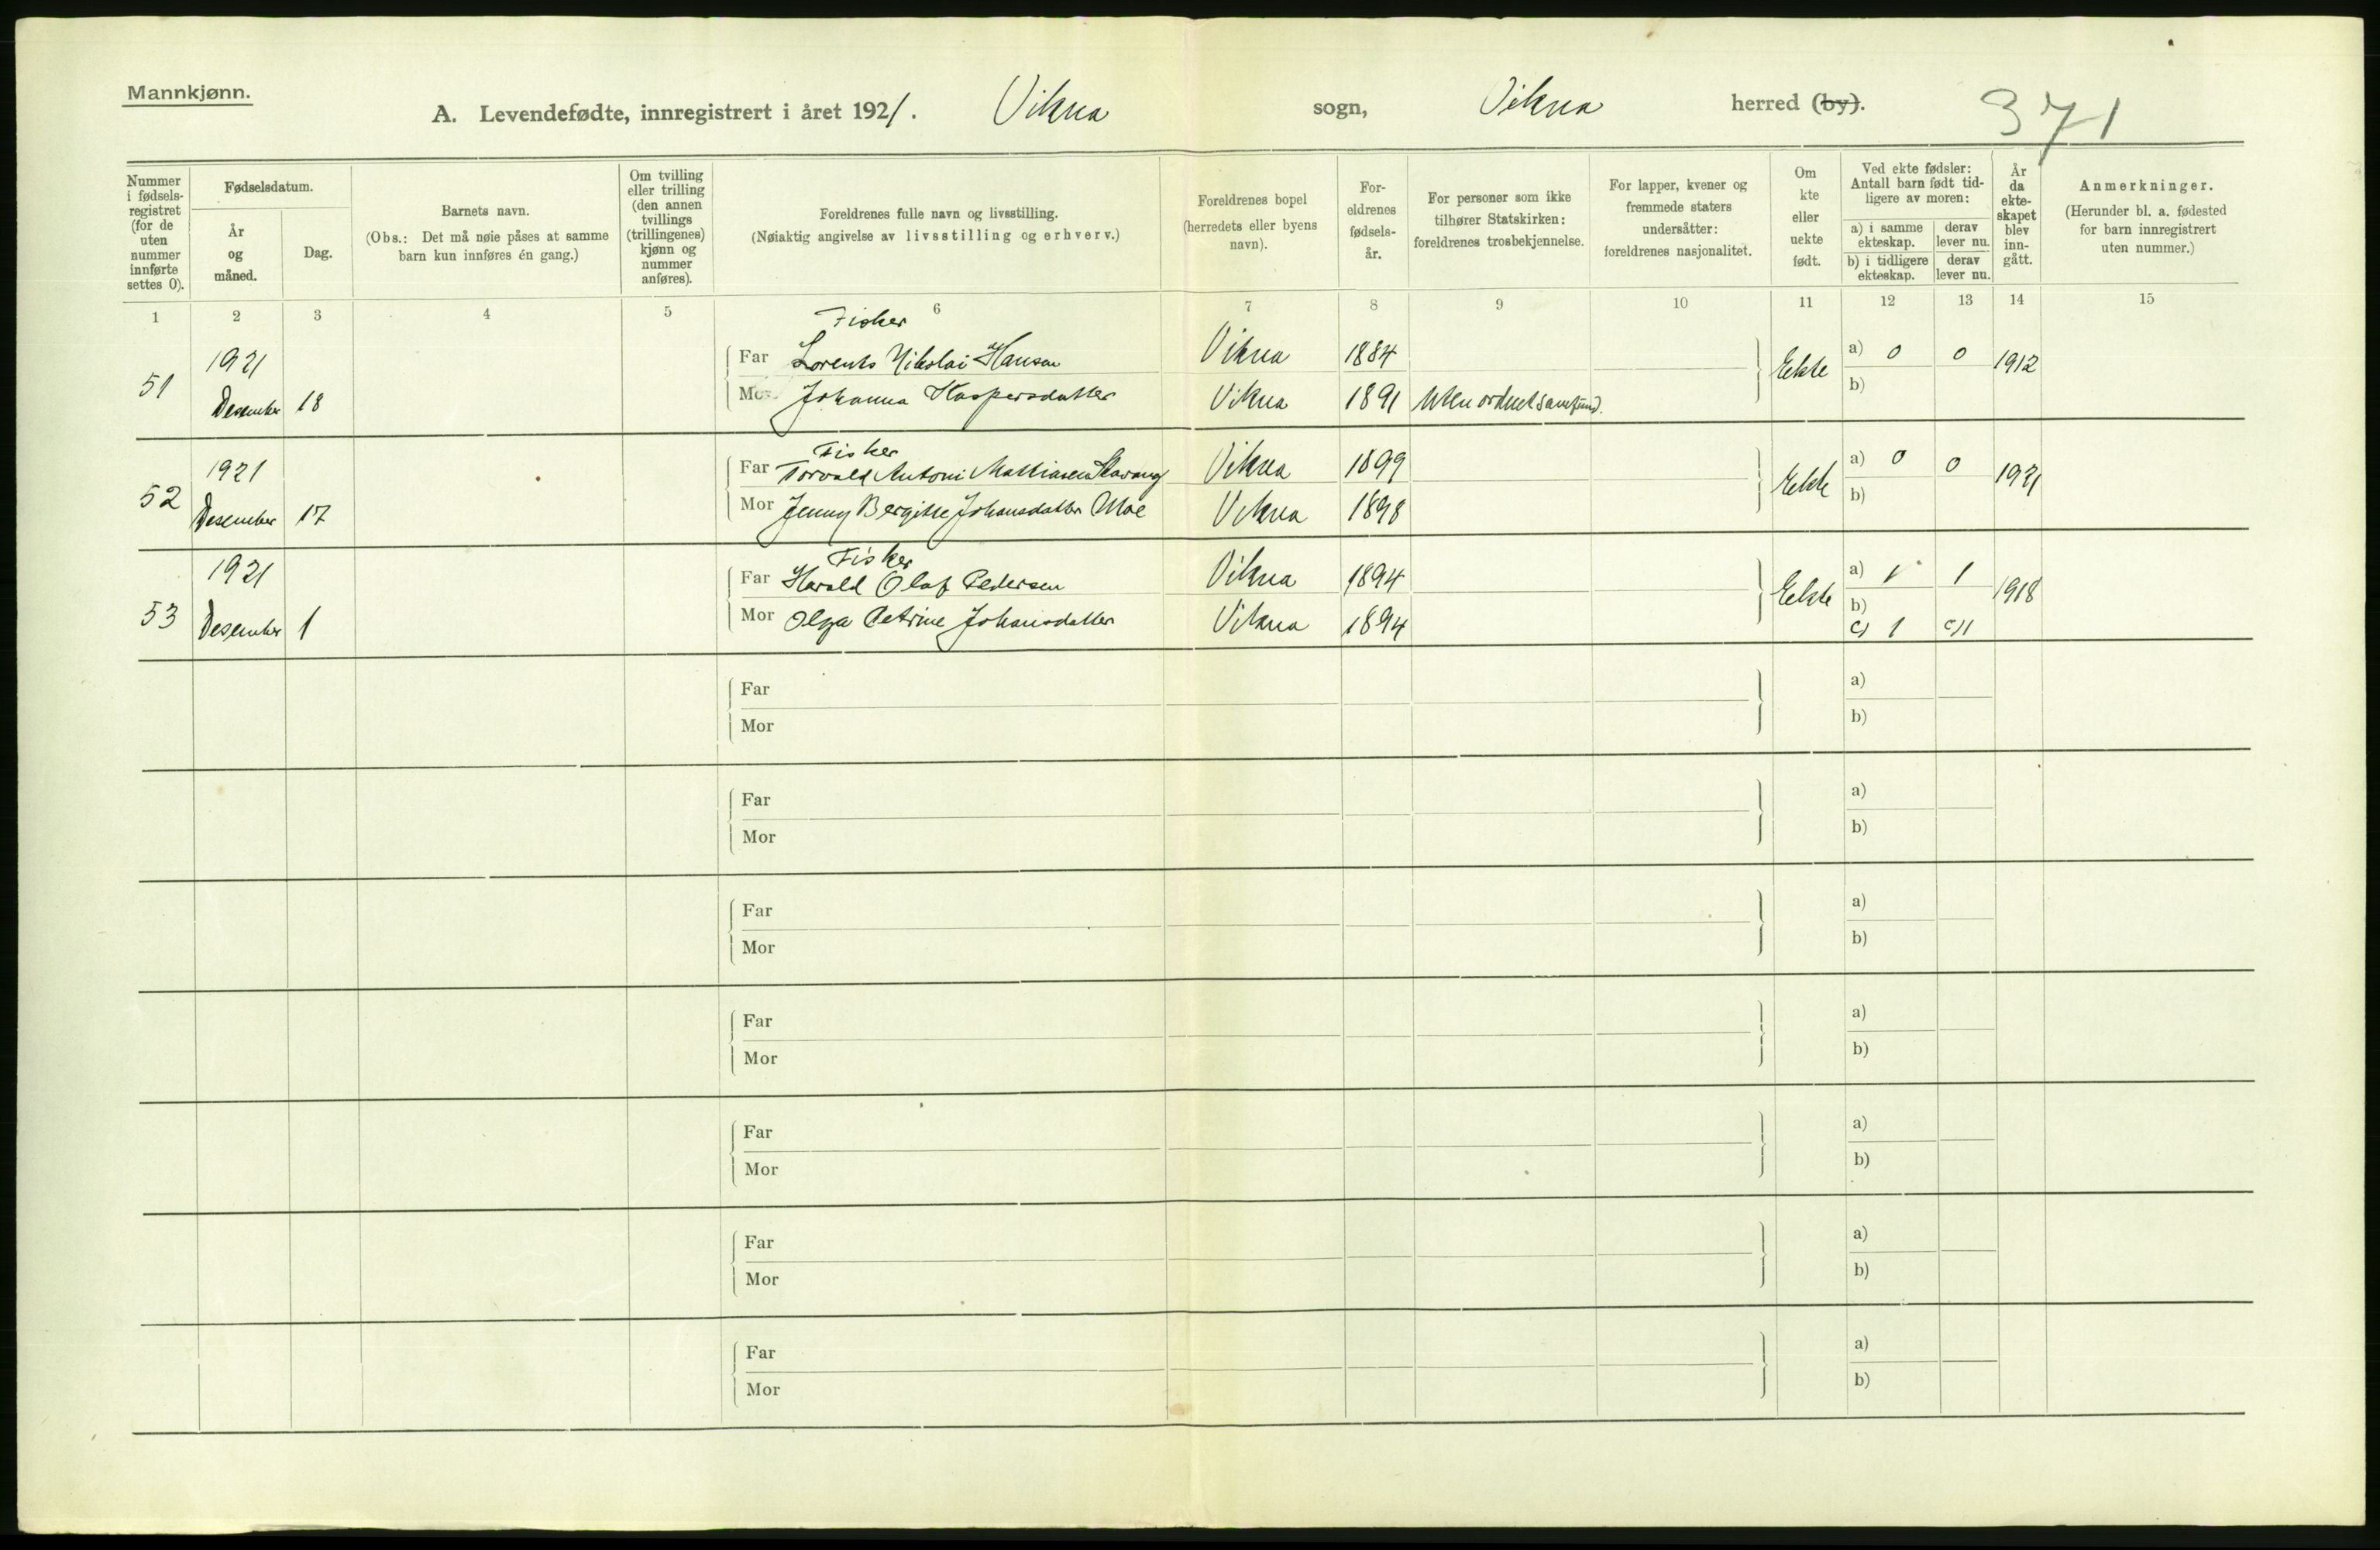 Mannkjønn.
A. Levendefødte, innregistrert i året 1921. Vikna sogn, Vikna herred (by).
371
Nummer i fødsels-registret (for de uten nummer innførte settes 0).
Fødselsdatum.
År og måned.
Dag.
Barnets navn.
(Obs.: Det må nøie påses at samme barn kun innføres én gang.)
Om tvilling eller trilling (den annen tvillings (trillingenes) kjønn og nummer anføres).
Foreldrenes fulle navn og livsstilling.
(Nøiaktig angivelse av livsstilling og erhverv.)
Foreldrenes bopel (herredets eller byens navn).
For-eldrenes fødsels-år.
For personer som ikke tilhører Statskirken: foreldrenes trosbekjennelse.
For lapper, kvener og fremmede staters undersåtter: foreldrenes nasjonalitet.
Om kte eller uekte født.
Ved ekte fødsler: Antall barn født tid-ligere av moren:
a) i samme ekteskap.
derav lever nu.
b) i tidligere ekteskap.
derav lever nu.
År da ekte-skapet blev inn-gått.
Anmerkninger.
(Herunder bl. a. fødested for barn innregistrert uten nummer.)
1 2 3 4 5 6 7 8 9 10 11 12 13 14 15
Fisker
51 1921 Far Lorents Nikolai Hansen Vikna 1884 Ekte a) 0 0 1912
Desember 18 Mor Johanna Kaspersdatter Vikna 1891 Uten ordnet samfund. b)
Fisker
52 1921 Far Torvald Antoni Mathiasen Vikna 1899 Ekte a) 0 0 1921
Desember 17 Mor Jenny Bergitte Johansdatter Moe Vikna 1898 b)
Fisker
53 1921 Far Harald Olaf Pedersen Vikna 1894 Ekte a) 1 1 1918
Desember 1 Mor Olga Petrine Johansdatter Vikna 1894 b)
c) 1 c) 1
Far a)
Mor b)
Far a)
Mor b)
Far a)
Mor b)
Far a)
Mor b)
Far a)
Mor b)
Far a)
Mor b)
Far a)
Mor b)